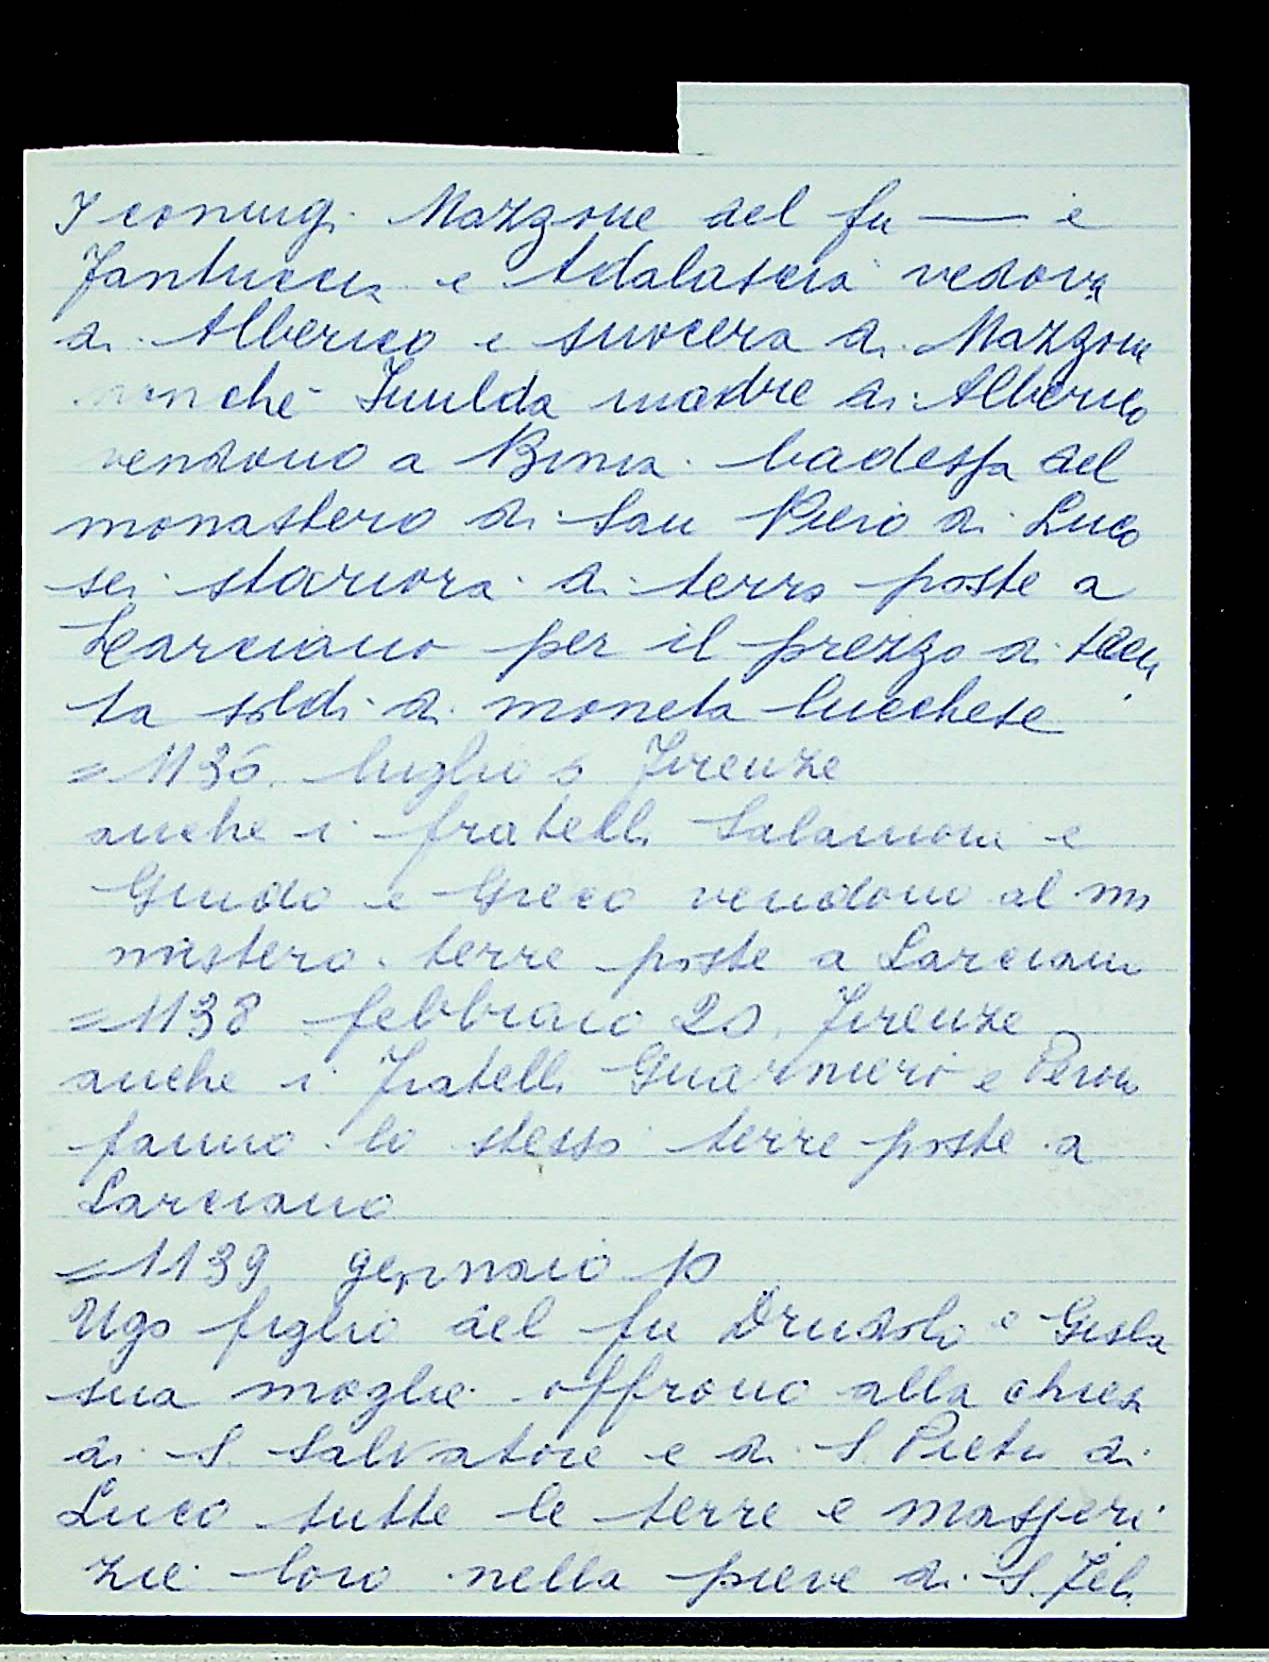 I coniug. Mazzone del fu — e
Fantuccia e Adalascia vedova
di Alberico e suocera di Mazzone
nonché Imilda madre di Alberico
vendono a Binia badessa del
monastero di San Piero di Luco
sei stariora di terra poste a
Larciano per il prezzo di tren
ta soldi di moneta lucchese
=1136 luglio 5 Firenze
anche i fratelli Salamone e
Guido e Greco vendono al mo
nastero terre poste a Larciano
=1138 febbraio 20. Firenze
anche i fratelli Guarnieri e
fanno lo stesso terre poste a
Larciano
=1139 gennaio 10
Ugo figlio del fu Drudolo e Gisla
sua moglie offrono alla chiesa
di S. Salvatore e di S. Pietro di
Luco tutte le terre e masseri
zie loro nella pieve di S. Fel.